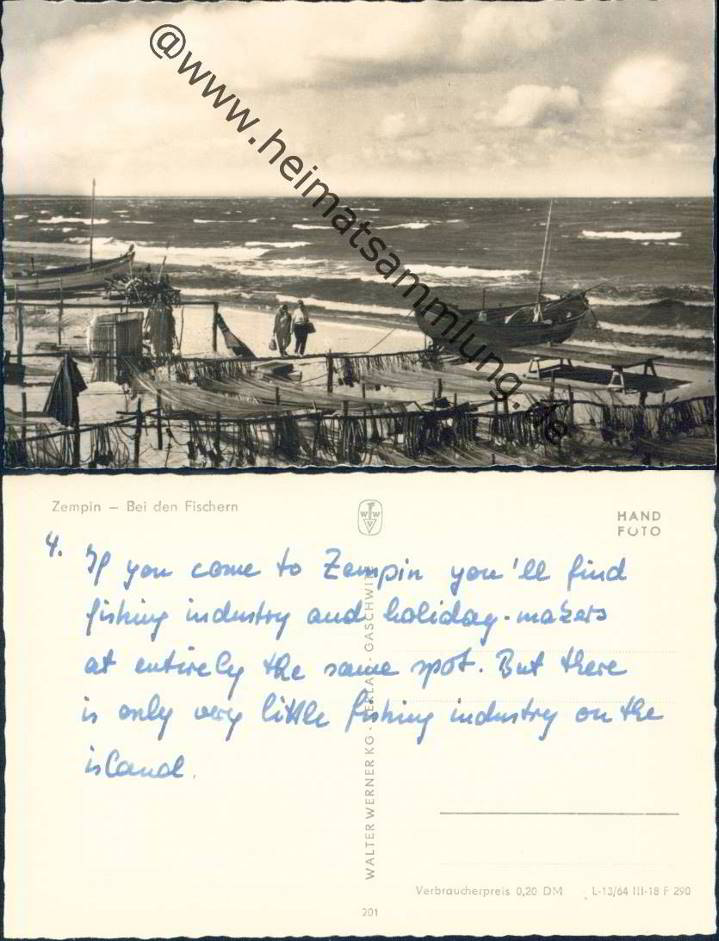 @www.heimatsammlung.de
Zempin – Bei den Fischern
WW
HAND
FOTO
4. If you come to Zempin you'll find
fishing industry and holiday-makers
at entirely the same spot. But there
is only very little fishing industry on the
island.
WALTER WERNER KG · VERLAG · GASCHWITZ
Verbraucherpreis 0,20 DM L-13/64 III-18 F 290
201